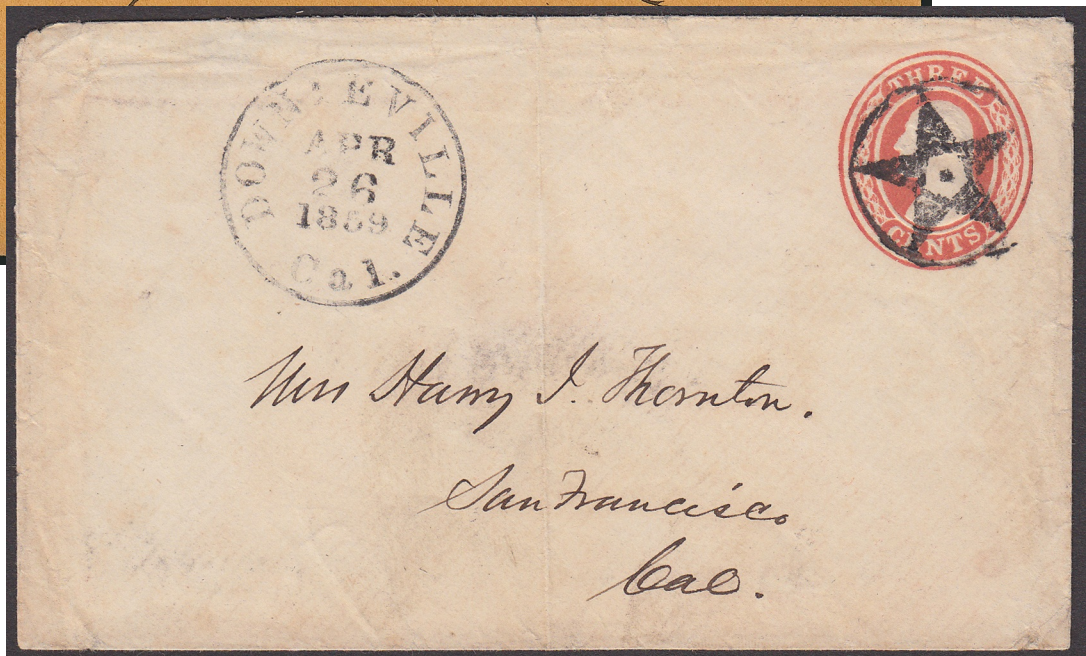 DOWNIEVILLE
APR
26
1859
Cal.
THREE
CENTS
Mrs Harry I. Thornton.
San Francisco
Cal.